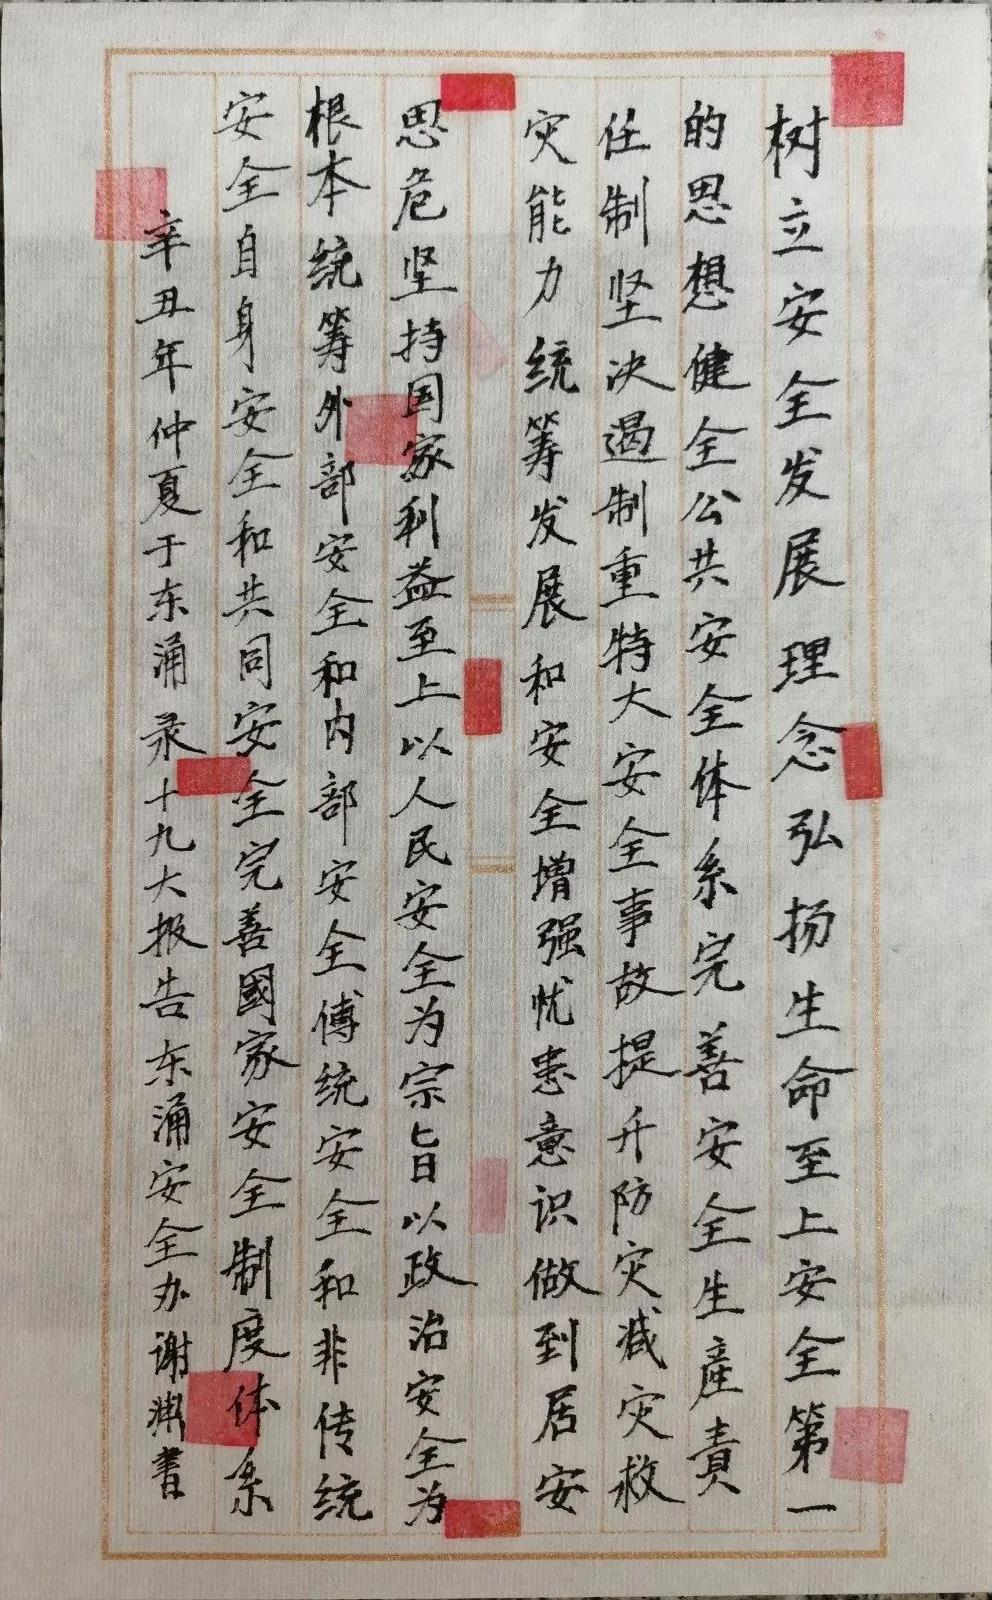 树立安全发展理念弘扬生命至上安全第一
的思想健全公共安全体系完善安全生產責
任制坚决遏制重特大安全事故提升防灾减灾救
灾能力统筹发展和安全增强忧患意识做到居安
思危坚持国家利益至上以人民安全为宗旨以政治安全为
根本统筹外部安全和内部安全傅统安全和非传统
安全自身安全和共同安全完善國家安全制度体系
辛丑年仲夏于东涌录十九大报告东涌安全办谢渊書